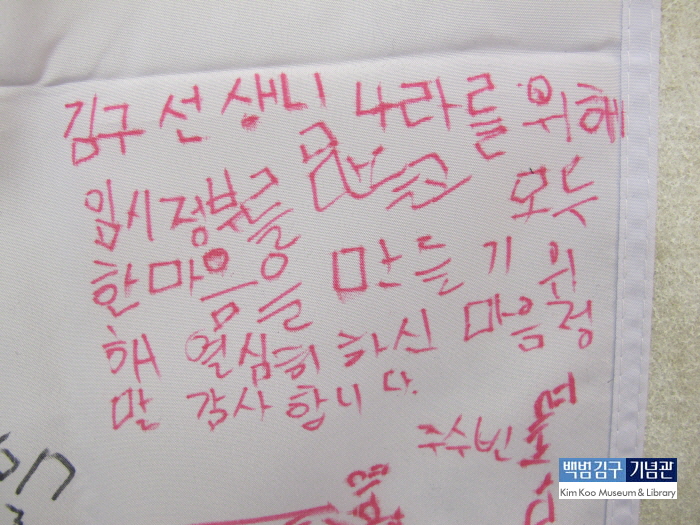 김구 선생니 나라를 위해
임시정부를 만들고 모두
한마음을 만들기 위
해 열심히 하신 마음정
말 감사합니다.
주수빈
백범김구 기념관
Kim Koo Museum & Library